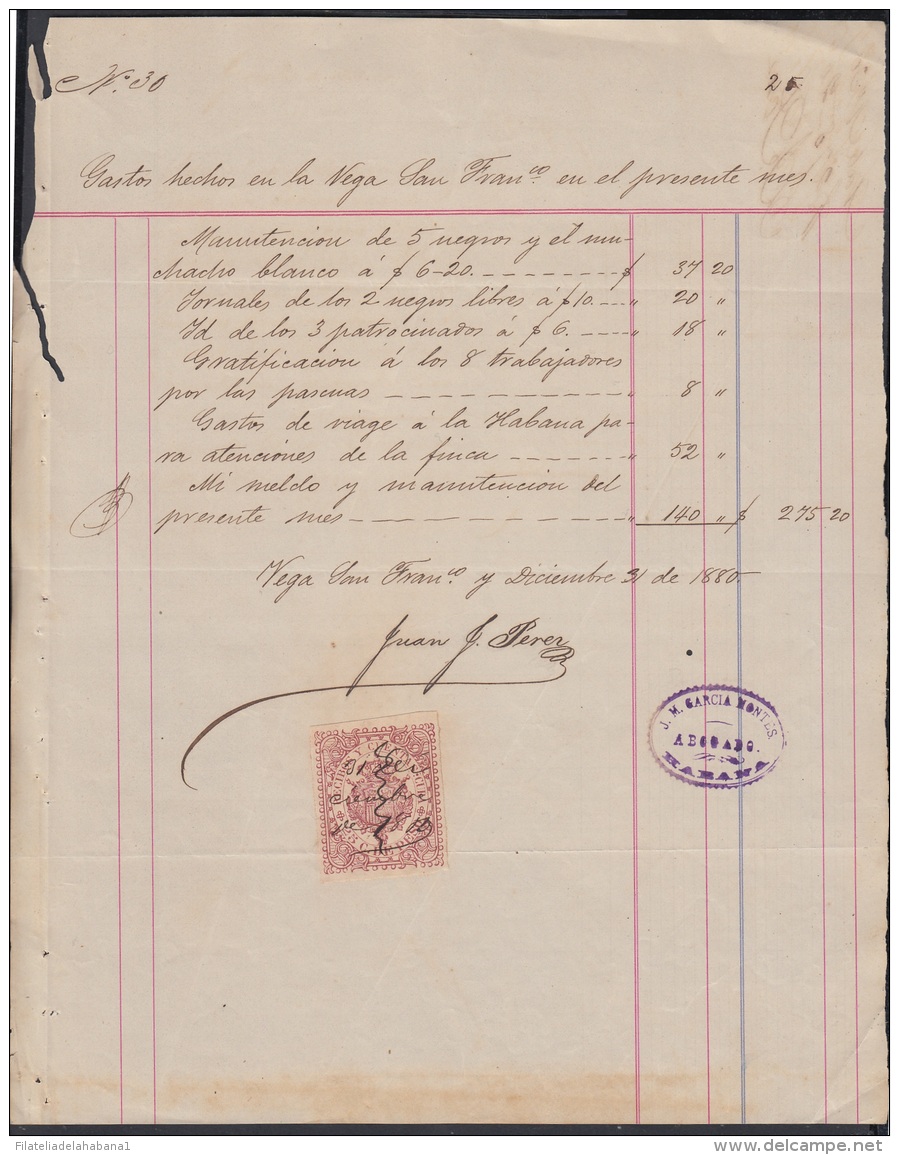 Nº. 30
25
Gastos hechos en la Vega San Franco. en el presente mes.
Manutencion de 5 negros y el mu-
chacho blanco á $ 6-20. - - - - - - - - $ 37 20
Jornales de los 2 negros libres á $10. - - - „ 20 „
Id de los 3 patrocinados á $ 6. - - - - „ 18 „
Gratificacion á los 8 trabajadores
por las pascuas - - - - - - - - - - - „ 8 „
Gastos de viage á la Habana pa-
ra atenciones de la finca - - - - - - - „ 52 „
Mi sueldo y manutencion del
presente mes - - - - - - - - - - - - „ 140 „ $ 275 20
Vega San Franco. y Diciembre 31 de 1880
Juan J. Perez
J. M. GARCIA MONTES.
ABOGADO.
HABANA
31
Filateliadelahabana1
delcampe.net